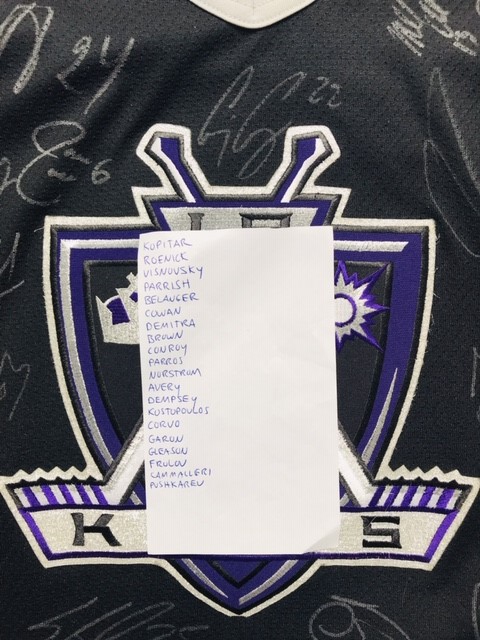 24
22
13
6
LA
KOPITAR
ROENICK
VISNOVSKY
PARRISH
BELANGER
COWAN
DEMITRA
BROWN
CONROY
PARROS
NORSTROM
AVERY
DEMPSEY
KOSTOPOULOS
CORVO
GARON
GLEASON
FROLOV
CAMMALLERI
PUSHKAREV
K S